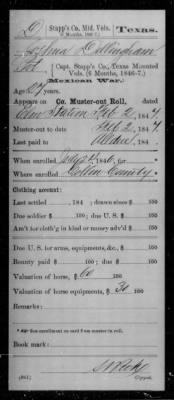 D | Stapp's Co., Mtd. Vols. | Texas.
(6 Months, 1846-7.)
Joshua Dillingham
Pvt, { Capt. Stapp's Co., Texas Mounted Vols. (6 Months, 1846-7.)
Mexican War.
Age 27 years.
Appears on Co. Muster-out Roll, dated
Feb 2, 184
Muster-out to date Feb 2, 1847
Last paid to , 184
When enrolled , 1846
Where enrolled Collin County
Clothing account:
Last settled , 184 ; drawn since $ 100
Due soldier $ 100; due U. S. $ 100
Am't for cloth'g in kind or money adv'd $ 100
Due U. S. for arms, equipments, &c., $ 100
Bounty paid $ 100; due $ 100
Valuation of horse, $ 60 100
Valuation of horse equipments, $ 30 100
Remarks:
* See enrollment on card from muster-in roll.
Book mark:
(861) Copyist.